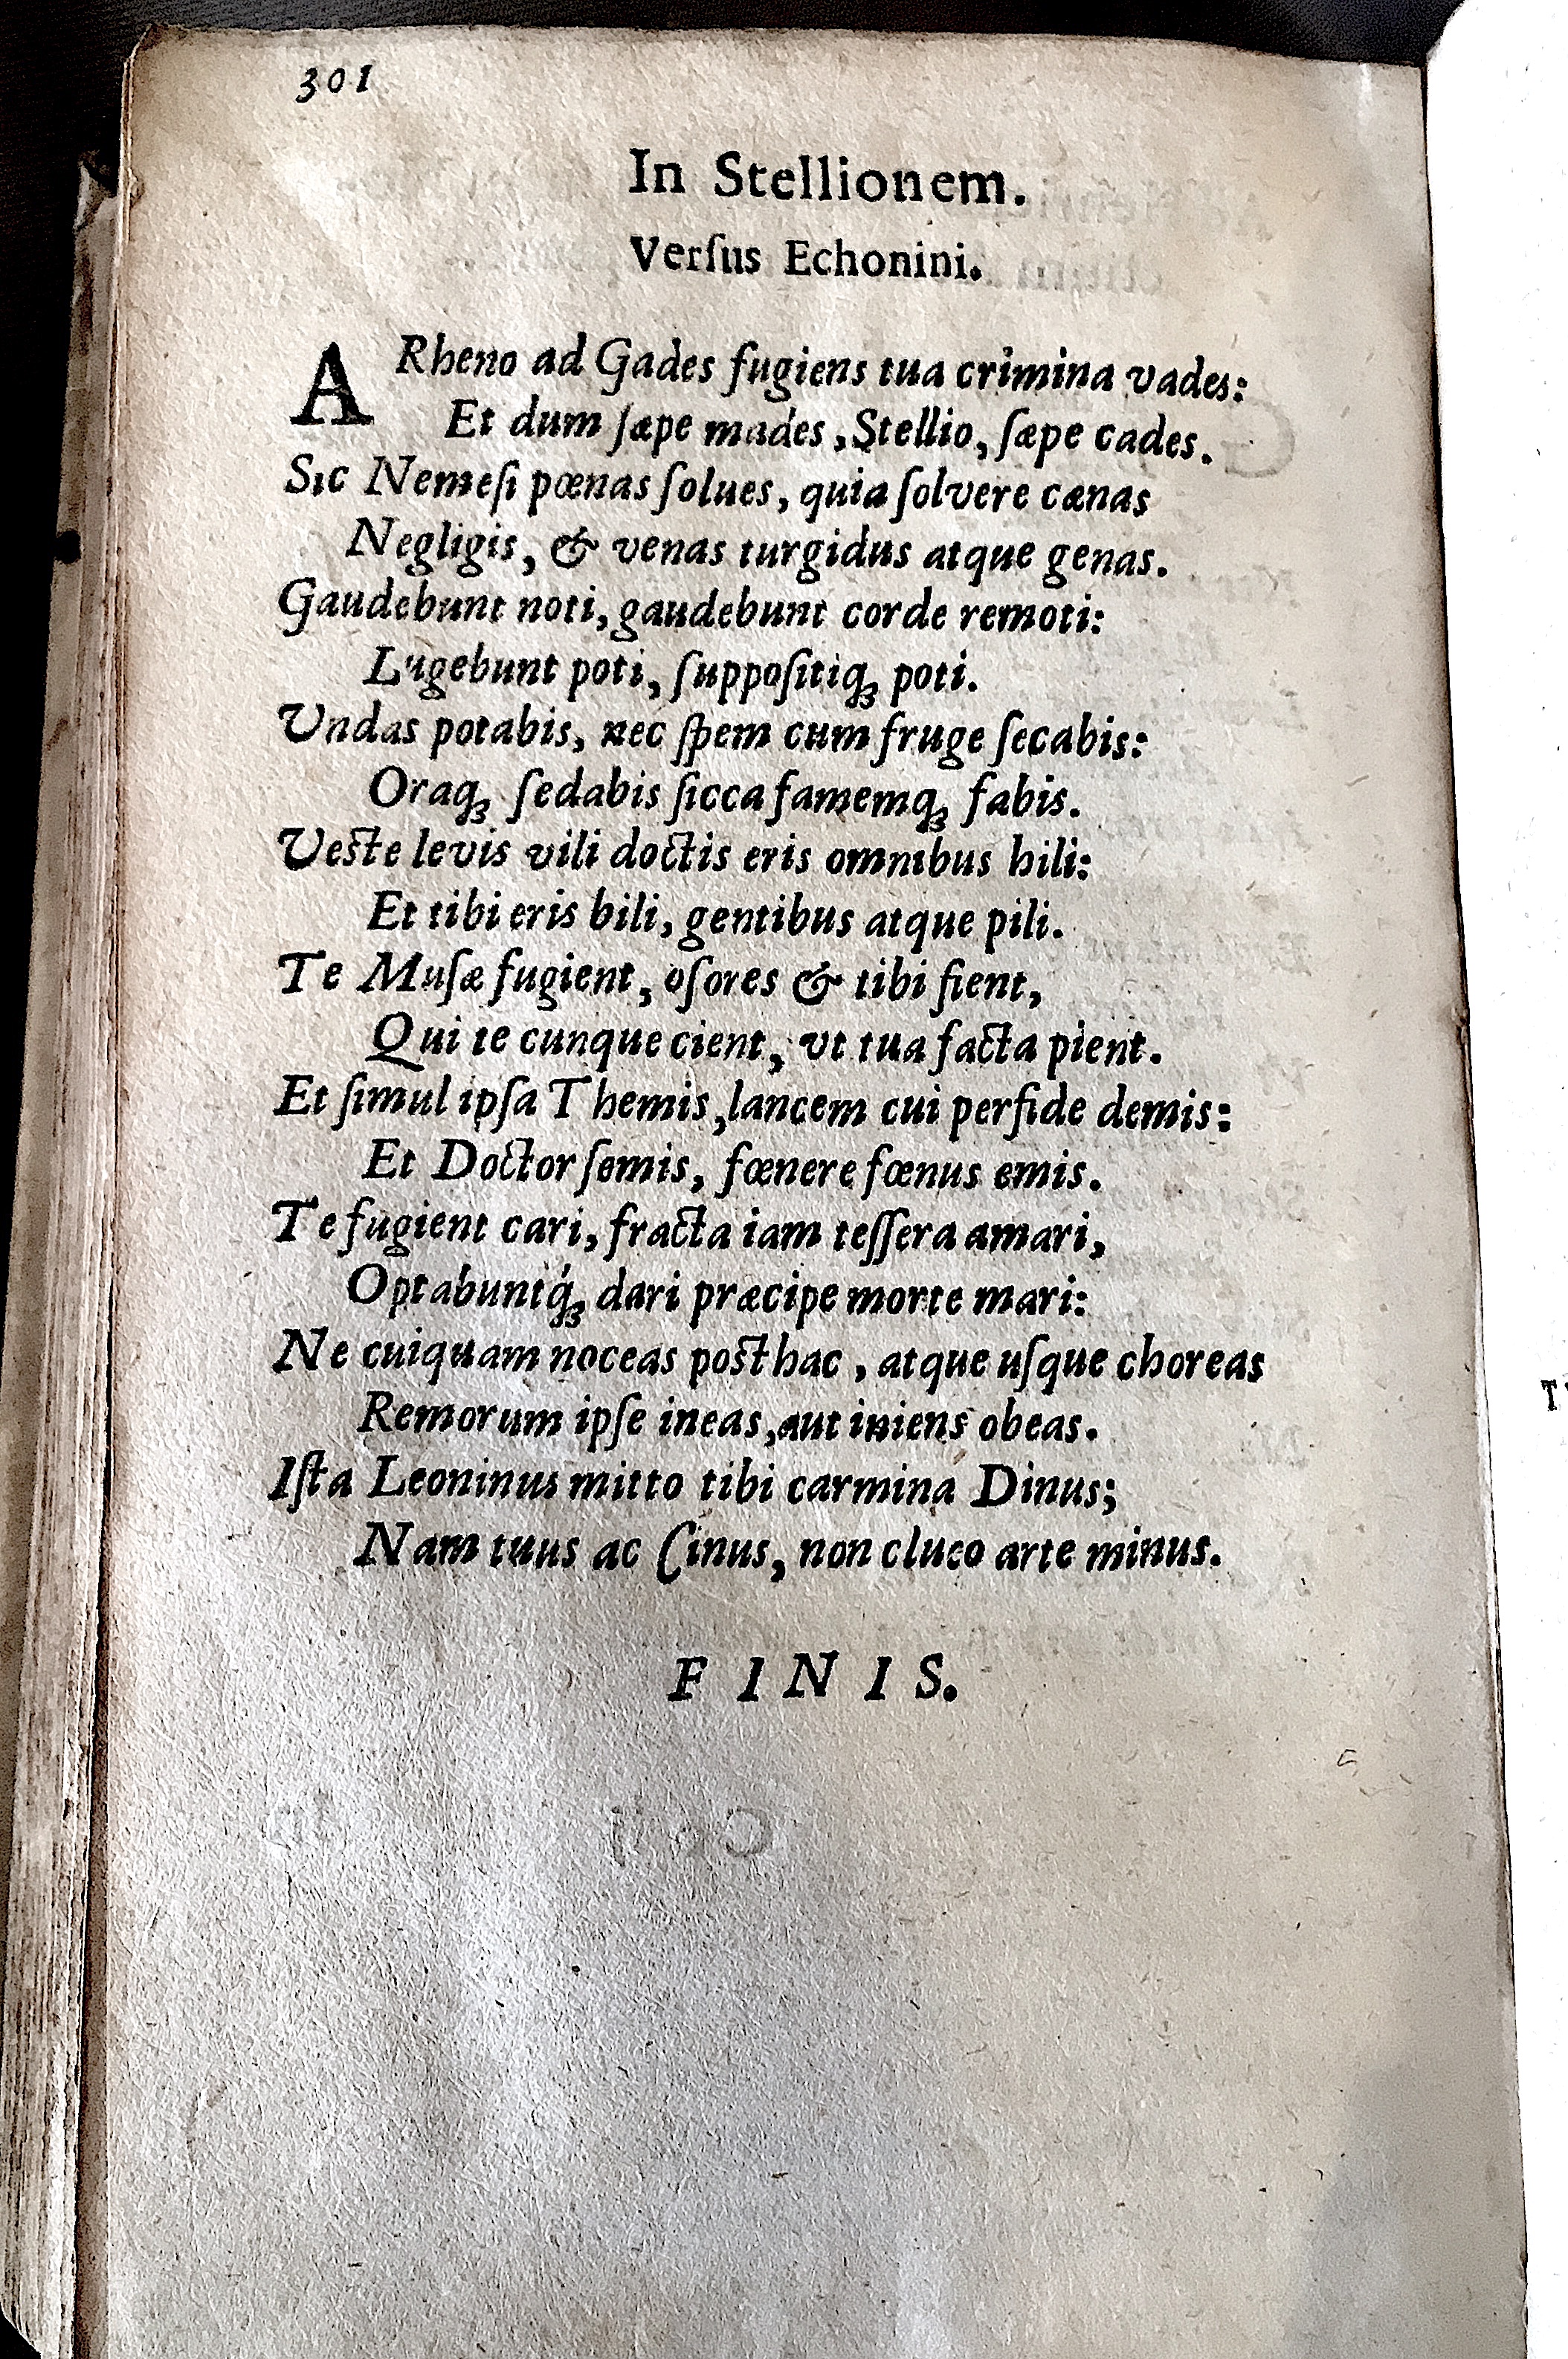 301
In Stellionem.
Verſus Echonini.
A Rheno ad Gades fugiens tua crimina vades:
Et dum ſæpe mades, Stellio, ſæpe cades.
Sic Nemeſi pœnas ſolues, quia ſolvere cænas
Negligis, & venas turgidus atque genas.
Gaudebunt noti, gaudebunt corde remoti:
Lugebunt poti, ſuppoſitiq́; poti.
Undas potabis, nec ſpem cum fruge ſecabis:
Oraq; ſedabis ſicca famemq; fabis.
Veſte levis vili doctis eris omnibus hili:
Et tibi eris bili, gentibus atque pili.
Te Muſæ fugient, oſores & tibi fient,
Qui te cunque cient, vt tua facta pient.
Et ſimul ipſa Themis, lancem cui perfide demis:
Et Doctor ſemis, fœnere fœnus emis.
Te fugient cari, fracta iam teſſera amari,
Optabuntq́; dari præcipe morte mari:
Ne cuiquam noceas poſthac, atque uſque choreas
Remorum ipſe ineas, aut iniens obeas.
Iſta Leoninus mitto tibi carmina Dinus;
Nam tuus ac Cinus, non clueo arte minus.
FINIS.